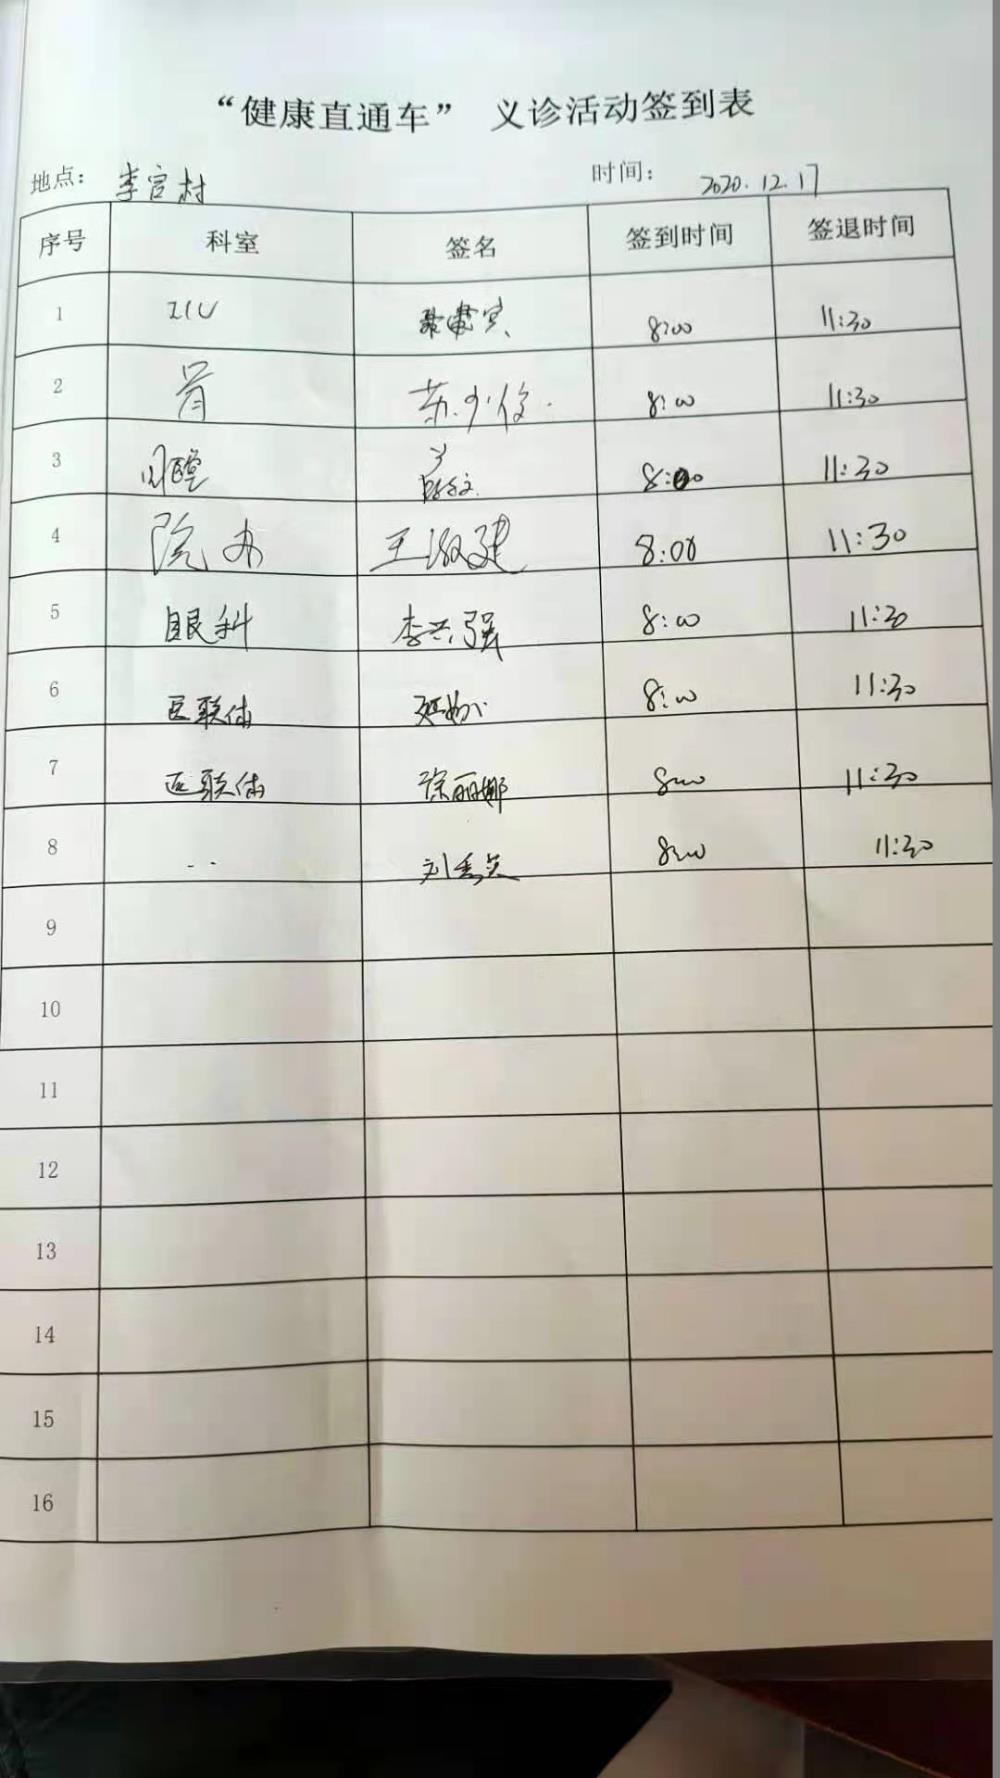 “健康直通车” 义诊活动签到表
地点： 李官村 时间： 2020.12.17
序号 科室 签名 签到时间 签退时间
1 ICU 8:00 11:30
2 骨 8:00 11:30
3 口腔 8:00 11:30
4 院办 王淑建 8:00 11:30
5 眼科 李兴强 8:00 11:30
6 医联体 8:00 11:30
7 医联体 徐丽娜 8:00 11:30
8 .. 刘秀英 8:00 11:30
9
10
11
12
13
14
15
16